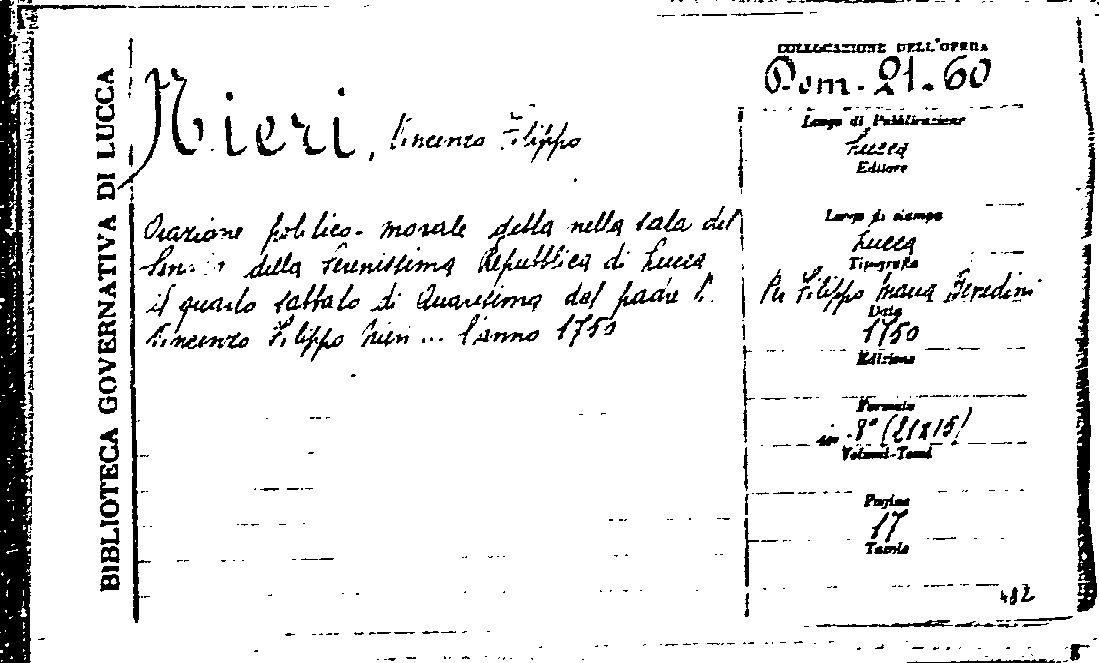 BIBLIOTECA GOVERNATIVA DI LUCCA
Nieri, Vincenzo Filippo
Orazione politico-morale detta nella sala del
Senato della Serenissima Repubblica di Lucca
il quarto sabbato di Quaresima dal padre
Vincenzo Filippo Nieri ... l'anno 1750
COLLOCAZIONE DELL'OPERA
21.60
Luogo di Pubblicazione
Lucca
Editore
Luogo di stampa
Lucca
Tipografia
Per Filippo Maria Benedini
Data
1750
Edizione
Formato
in-8° (21x15)
Volumi-Tomi
Pagine
17
Tavole
482